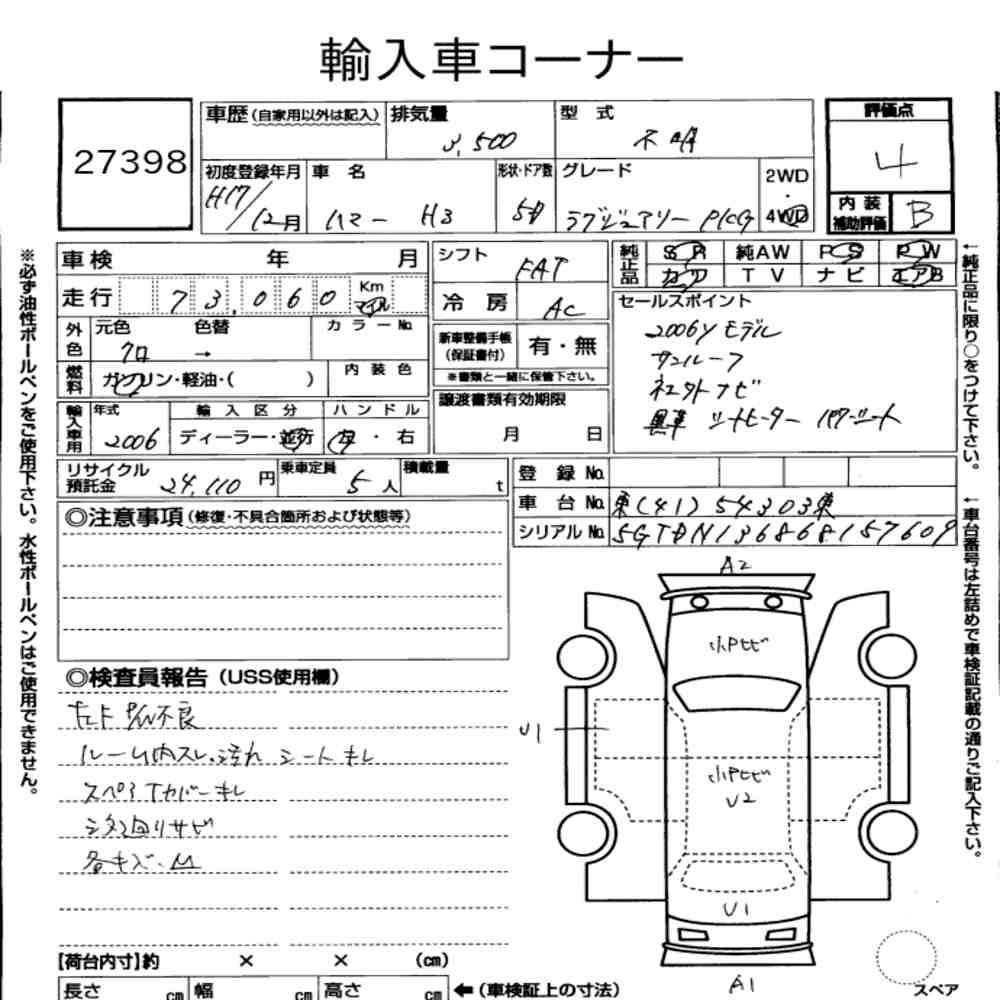 輸入車コーナー
27398
車歴(自家用以外は記入) 排気量 3,500 型式 不明
評価点 4
初度登録年月 H17/12月 車名 ハマー H3 形状・ドア数 5D グレード ラグジュアリー PKG 2WD 4WD
内装補助評価 B
車検 年 月
走行 73,060 Km マイル
外色 元色 クロ 色替 → カラーNo.
燃料 ガソリン・軽油・( ) 内装色
輸入車用 年式 2006 輸入区分 ディーラー・並行 ハンドル 左・右
シフト FAT
冷房 AC
新車整備手帳(保証書付) 有・無
※書類と一緒に保管下さい。
譲渡書類有効期限 月 日
純正品 SR 純AW PS PW
カワ TV ナビ エアB
セールスポイント
2006yモデル
サンルーフ
社外ナビ
黒革 シートヒーター パワーシート
リサイクル預託金 24,110円 乗車定員 5人 積載量 t
登録No.
車台No. 東(41)54303東
シリアルNo. 5GTDN136868157609
◎注意事項(修復・不具合箇所および状態等)
◎検査員報告(USS使用欄)
P/W不良
ルーム内スレ、汚れ シートキレ
スペアTカバーキレ
下廻りサビ
各キズ・凹
A2
小Pヒビ
U1
小Pヒビ
U2
U1
A1
スペア
【荷台内寸】約 × × (cm)
長さ cm 幅 cm 高さ cm ←(車検証上の寸法)
※必ず油性ボールペンをご使用下さい。水性ボールペンはご使用できません。
←純正品に限り○をつけて下さい。
←車台番号は左詰めで車検証記載の通りご記入下さい。